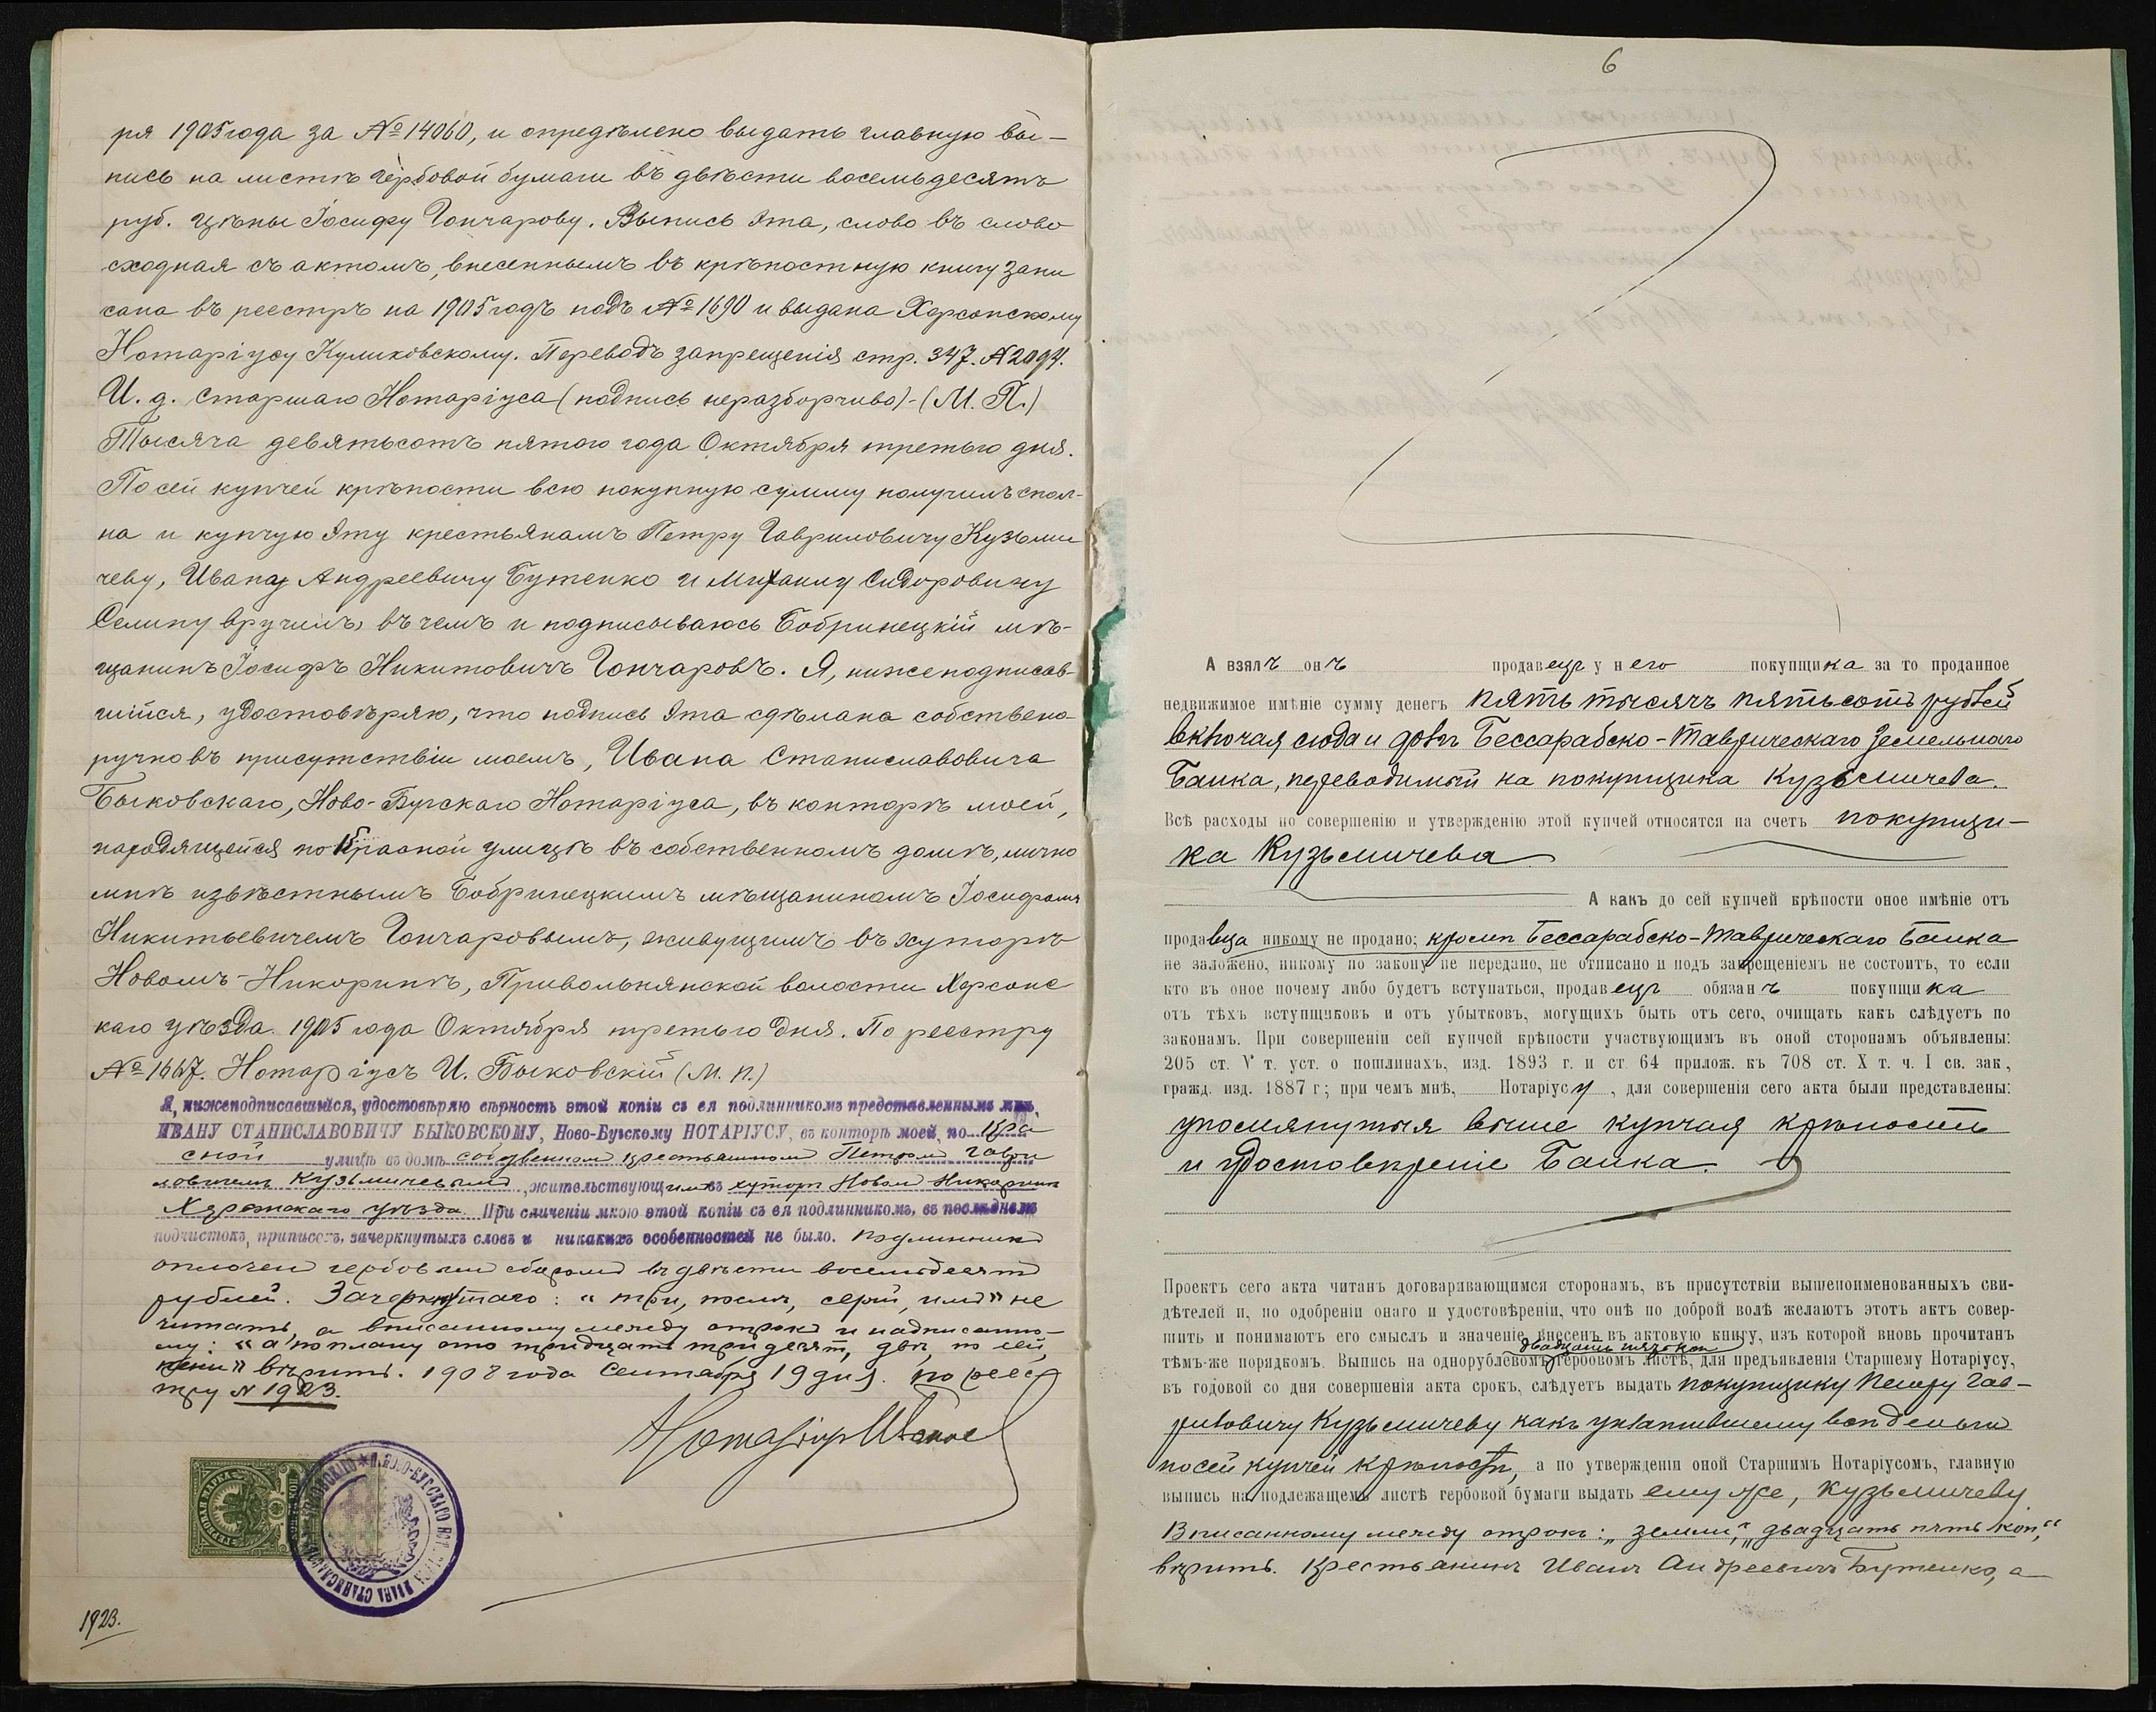 ря 1905 года за № 14060, и опредѣлено выдать главную вы-
пись на листѣ гербовой бумаги въ двѣсти восемьдесятъ
руб. цѣны Іосифу Гончарову. Выпись эта, слово въ слово
сходная съ актомъ, внесеннымъ въ крѣпостную книгу запи
сана въ реестръ на 1905 годъ подъ № 1690 и выдана Херсонскому
Нотаріусу Куликовскому. Переводъ запрещенія стр. 347. № 2094.
И. д. Старшаго Нотаріуса (подпись неразборчива) - (М. П.)
Тысяча девятьсотъ пятого года Октября третьяго дня.
По сей купчей крѣпости всю покупную сумму получилъ спол-
на и купчую эту крестьянамъ Петру Гавриловичу Кузьми
чеву, Ивану Андреевичу Бутенко и Михаилу Сидоровичу
Селину вручилъ, въ чемъ и подписываюсь Бобринецкій мѣ-
щанинъ Іосифъ Никитовичъ Гончаровъ. Я, нижеподписав-
шійся, удостовѣряю, что подпись эта сдѣлана собственно-
ручно въ присутствіи моемъ, Ивана Станиславовича
Быковскаго, Ново-Бугскаго Нотаріуса, въ конторѣ моей,
находящейся по Красной улицѣ въ собственномъ домѣ, лично
мнѣ извѣстнымъ Бобринецкимъ мѣщаниномъ Іосифомъ
Никитьевичемъ Гончаровымъ, живущимъ въ хуторѣ
Новомъ-Никоринѣ, Привольнянской волости Херсонс
каго уѣзда. 1905 года Октября третьяго дня. По реестру
№ 1667. Нотаріусъ И. Быковскій (М. П.)
Я, нижеподписавшійся, удостовѣряю вѣрность этой копіи съ ея подлинникомъ представленнымъ мнѣ,
ИВАНУ СТАНИСЛАВОВИЧУ БЫКОВСКОМУ, Ново-Бугскому НОТАРІУСУ, въ конторѣ моей, по Кра
сной улицѣ въ домѣ собственномъ крестьяниномъ Петромъ Гаври
ловичемъ Кузьмичевымъ, жительствующимъ въ хуторѣ Новомъ Никоринѣ
Херсонскаго уѣзда. При сличеніи мною этой копіи съ ея подлинникомъ, въ послѣднемъ
подчистокъ, приписокъ, зачеркнутыхъ словъ и никакихъ особенностей не было. Подлинникъ
оплоченъ гербовымъ сборомъ въ двѣсти восемьдесятъ
рублей. Зачеркнутаго: " три, " не
читать, а вписанному между строкъ и надписанно-
му: " а по плану сто тридцать три десят, двѣ, по сей,
" вѣрить. 1908 года Сентября 19 дня. По реес
тру № 1923.
Нотаріусъ
1923.
6
А взялъ онъ продавецъ у него покупщика за то проданное
недвижимое имѣніе сумму денегъ пять тысячъ пятьсотъ рублей
включая сюда и долгъ Бессарабско-Таврическаго Земельнаго
Банка, переводимый на покупщика Кузьмичева.
Всѣ расходы по совершенію и утвержденію этой купчей относятся на счетъ покупщи-
ка Кузьмичева
А какъ до сей купчей крѣпости оное имѣніе отъ
продавца никому не продано; кромѣ Бессарабско-Таврическаго Банка
не заложено, никому по закону не передано, не отписано и подъ запрещеніемъ не состоитъ, то если
кто въ оное почему либо будетъ вступаться, продавецъ обязанъ покупщика
отъ тѣхъ вступщиковъ и отъ убытковъ, могущихъ быть отъ сего, очищать какъ слѣдуетъ по
законамъ. При совершеніи сей купчей крѣпости участвующимъ въ оной сторонамъ объявлены:
205 ст. V т. уст. о пошлинахъ, изд. 1893 г. и ст 64 прилож. къ 708 ст. X т. ч. I св. зак.,
гражд. изд. 1887 г; при чемъ мнѣ, Нотаріусу, для совершенія сего акта были представлены:
упомянутыя выше купчая крѣпость
и удостовѣреніе Банка.
Проектъ сего акта читанъ договаривающимся сторонамъ, въ присутствіи вышепоименованныхъ сви-
дѣтелей и, по одобреніи онаго и удостовѣреніи, что онѣ по доброй волѣ желаютъ этотъ актъ совер-
шить и понимаютъ его смыслъ и значеніе, внесенъ въ актовую книгу, изъ которой вновь прочитанъ
двадцать пять коп
тѣмъ-же порядкомъ. Выпись на однорублевомъ гербовомъ листѣ, для предъявленія Старшему Нотаріусу,
въ годовой со дня совершенія акта срокъ, слѣдуетъ выдать покупщику Петру Гав-
риловичу Кузьмичеву какъ уплатившему всѣ деньги
по сей купчей крѣпости, а по утвержденіи оной Старшимъ Нотаріусомъ, главную
выпись на подлежащемъ листѣ гербовой бумаги выдать ему же, Кузьмичеву
Вписанному между строкъ: "земли", "двадцать пять коп,"
вѣрить. Крестьянинъ Иванъ Андреевичъ Бутенко, а